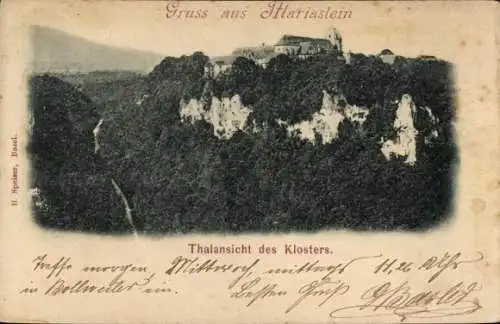 Gruss aus Mariastein
H Speiser, Basel.
Thalansicht des Klosters.
Treffe morgen Mittwoch, mittags 11.26 Uhr
in Bollweiler ein. Besten Gruß